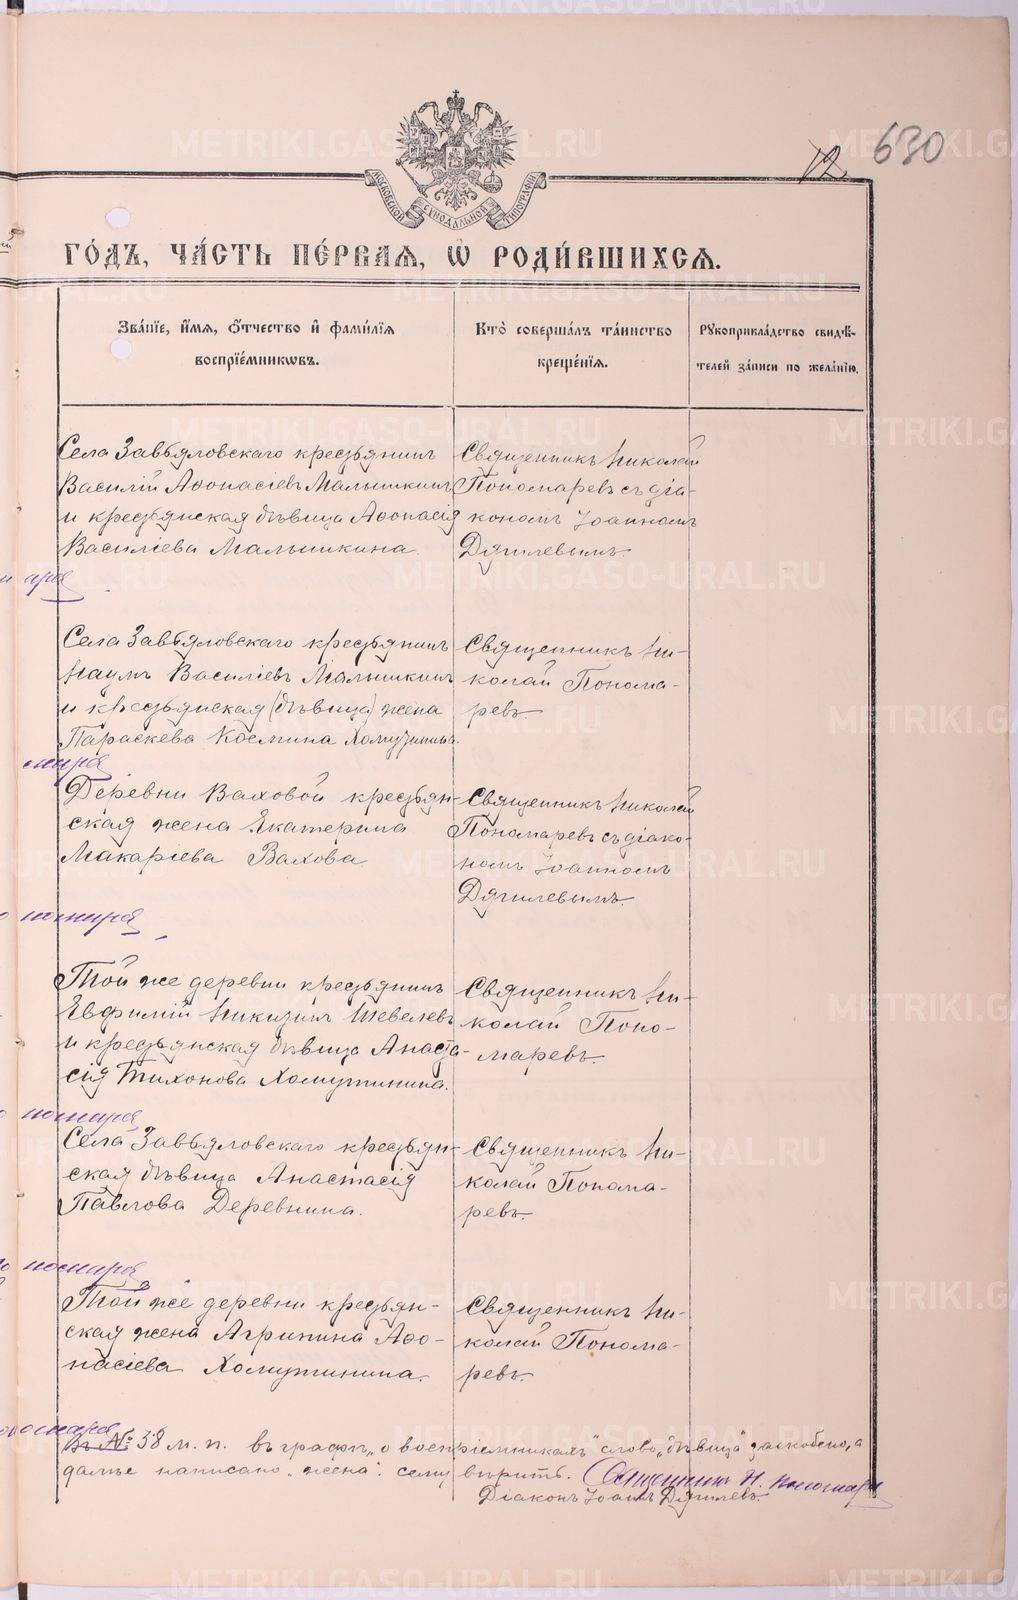 12 630
МОСКОВСКОЙ СУНОДАЛЬНОЙ ТИПОГРАФІИ
ГО́ДЪ, ЧА́СТЬ ПЕ́РВАѦ, Ѡ҆ РОДИ́ВШИХСѦ.
Зва́нїе, и҆́мѧ, ѻ҆́тчество и҆ фами́лїѧ
воспрїе́мникѡвъ.
Кто̀ соверша́лъ та́инство
креще́нїѧ.
Рꙋкоприкла́дство свидѣ́-
телей за́писи по жела́нїю.
Села Завьяловскаго крестьянинъ
Василій Аѳонасіевъ Малышкинъ
и крестьянская дѣвица Аѳонасія
Василіева Малышкина.
Священникъ Николай
Пономаревъ съ діа-
кономъ Іоанномъ
Дягилевымъ.
Села Завьяловскаго крестьянинъ
Наумъ Василіевъ Малышкинъ
и крестьянская (дѣвица) жена
Параскева Космина Хомутинина.
Священникъ Ни-
колай Понома-
ревъ.
Деревни Ваховой крестьян-
ская жена Екатерина
Макаріева Вахова
Священникъ Николай
Пономаревъ съ діако-
номъ Іоанномъ
Дягилевымъ.
Той же деревни крестьянинъ
Евфимій Никитинъ Шевелевъ
и крестьянская дѣвица Анаста-
сія Тихонова Хомутинина.
Священникъ Ни-
колай Поно-
маревъ.
Села Завьяловскаго крестьян-
ская дѣвица Анастасія
Павлова Деревнина.
Священникъ Ни-
колай Понома-
ревъ.
Той же деревни крестьян-
ская жена Агрипина Аѳо-
насіева Хомутинина.
Священникъ Ни-
колай Понома-
ревъ.
Въ № 38 м. п. въ графѣ „о воспріемникахъ" слово „дѣвица" заскоблено, а
далѣе написано „жена". сему вѣрить. Священникъ Н. Пономарев
Діаконъ Іоаннъ Дягилевъ.
METRIKI.GASO-URAL.RU